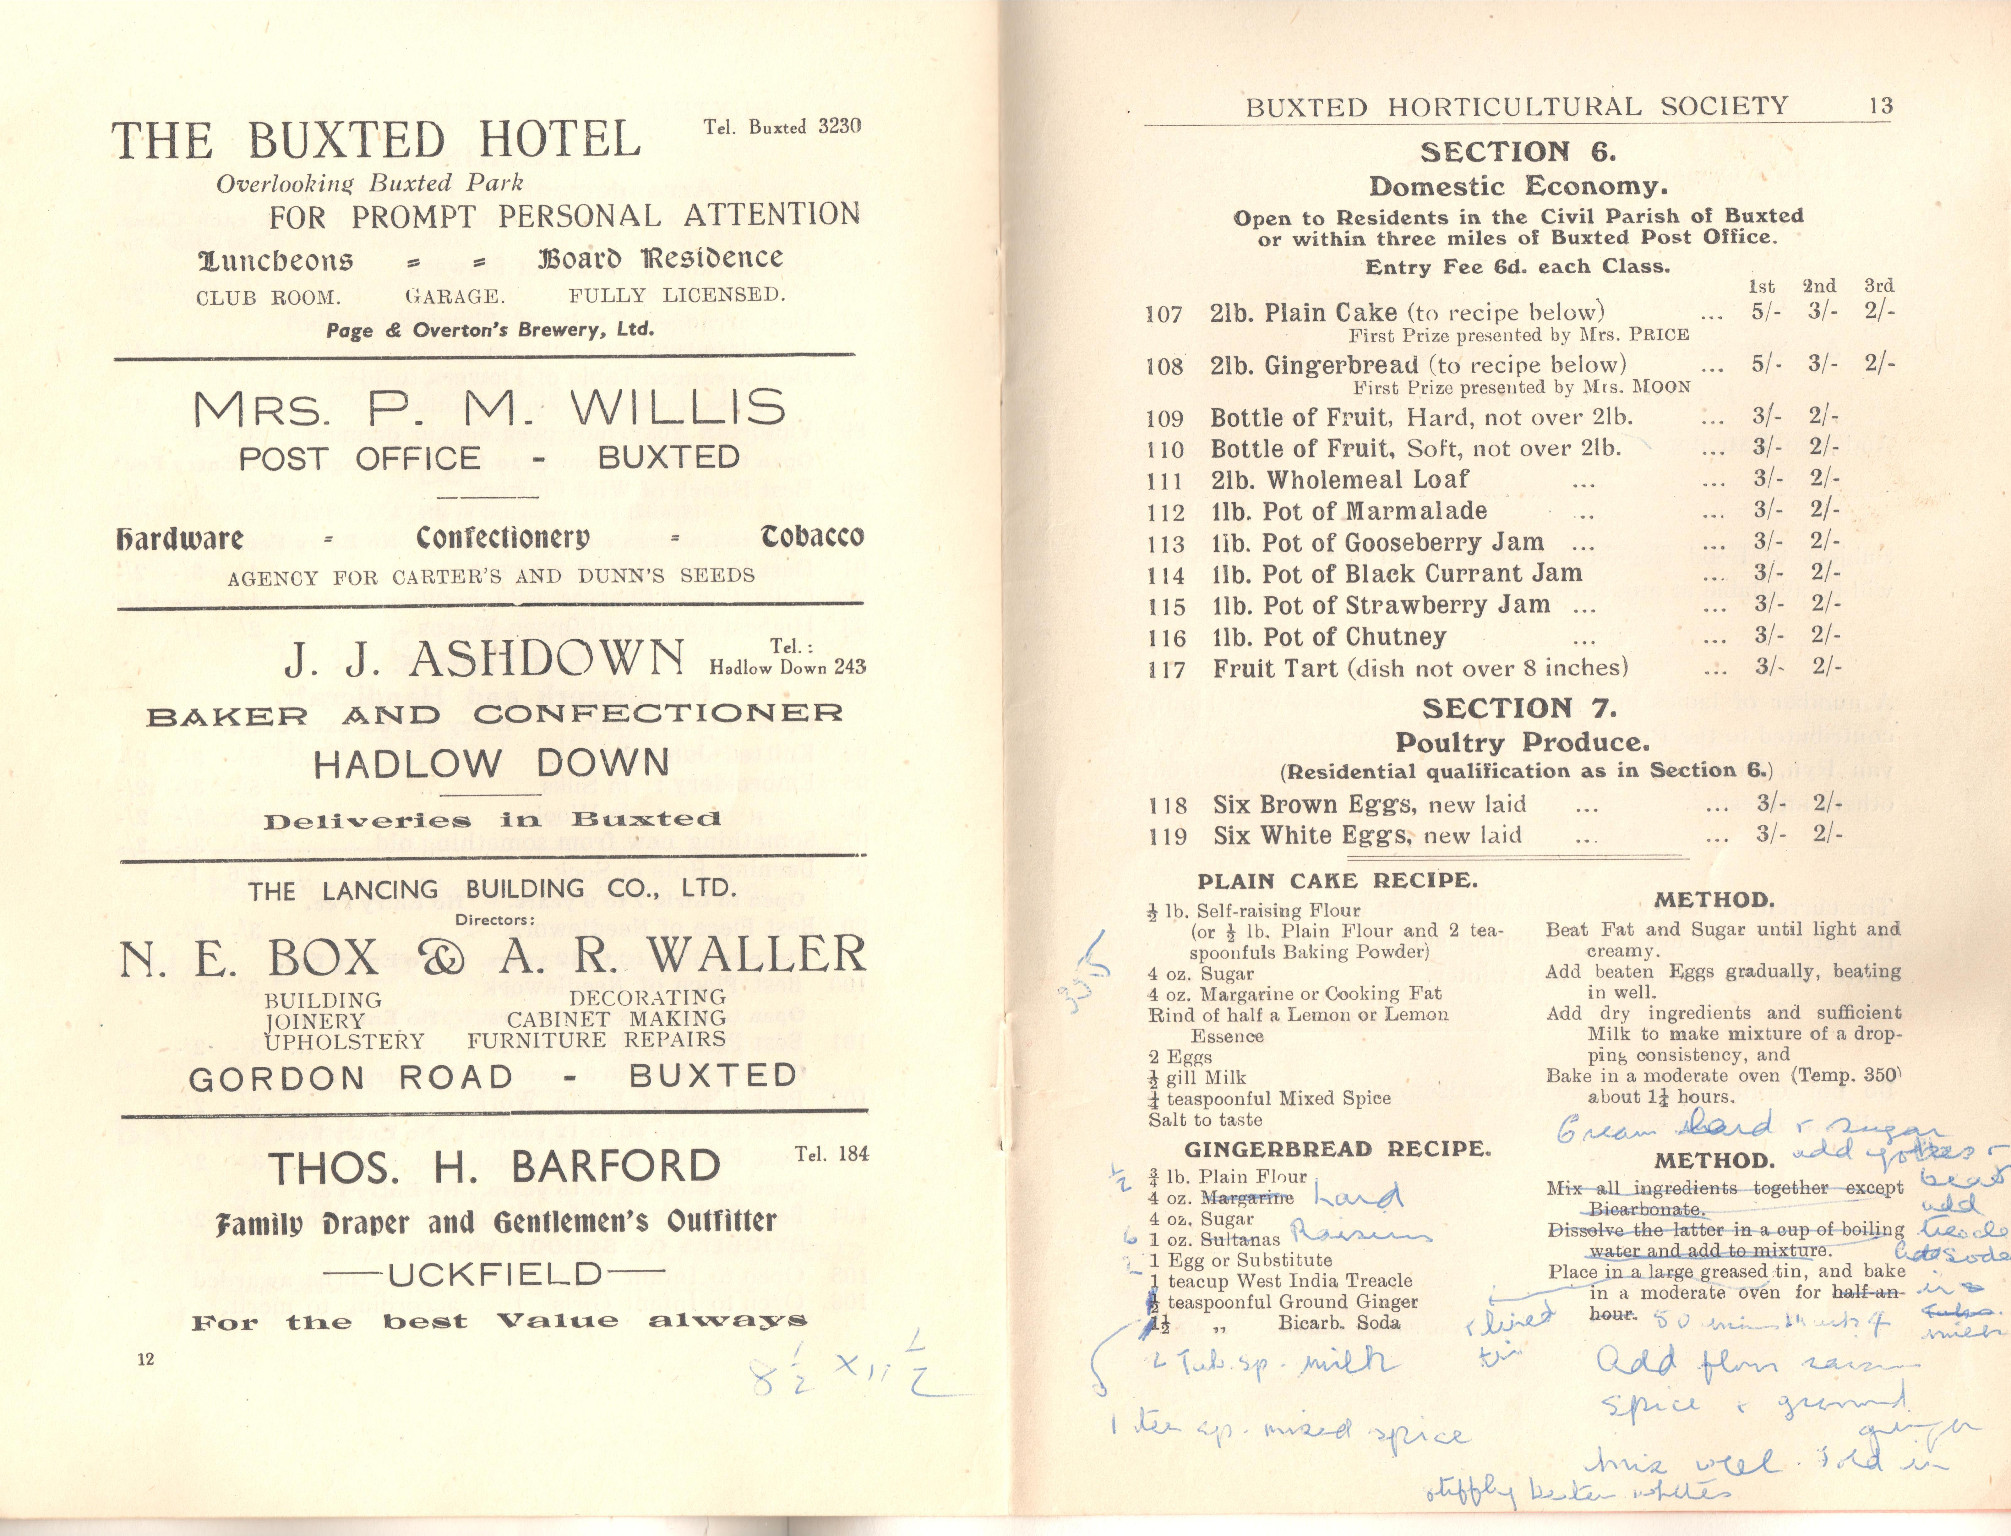 THE BUXTED HOTEL Tel. Buxted 3230
Overlooking Buxted Park
FOR PROMPT PERSONAL ATTENTION
Luncheons = = Board Residence
CLUB ROOM. GARAGE. FULLY LICENSED.
Page & Overton's Brewery, Ltd.
MRS. P. M. WILLIS
POST OFFICE - BUXTED
Hardware = Confectionery = Tobacco
AGENCY FOR CARTER'S AND DUNN'S SEEDS
J. J. ASHDOWN Tel.: Hadlow Down 243
BAKER AND CONFECTIONER
HADLOW DOWN
Deliveries in Buxted
THE LANCING BUILDING CO., LTD.
Directors:
N. E. BOX & A. R. WALLER
BUILDING DECORATING
JOINERY CABINET MAKING
UPHOLSTERY FURNITURE REPAIRS
GORDON ROAD - BUXTED
THOS. H. BARFORD Tel. 184
Family Draper and Gentlemen's Outfitter
—UCKFIELD—
For the best Value always
12
8½ × 11½
BUXTED HORTICULTURAL SOCIETY 13
SECTION 6.
Domestic Economy.
Open to Residents in the Civil Parish of Buxted
or within three miles of Buxted Post Office.
Entry Fee 6d. each Class.
1st 2nd 3rd
107 2lb. Plain Cake (to recipe below) ... 5/- 3/- 2/-
First Prize presented by Mrs. PRICE
108 2lb. Gingerbread (to recipe below) ... 5/- 3/- 2/-
First Prize presented by Mrs. MOON
109 Bottle of Fruit, Hard, not over 2lb. ... 3/- 2/-
110 Bottle of Fruit, Soft, not over 2lb. ... 3/- 2/-
111 2lb. Wholemeal Loaf ... ... 3/- 2/-
112 1lb. Pot of Marmalade ... ... 3/- 2/-
113 1lb. Pot of Gooseberry Jam ... ... 3/- 2/-
114 1lb. Pot of Black Currant Jam ... 3/- 2/-
115 1lb. Pot of Strawberry Jam ... ... 3/- 2/-
116 1lb. Pot of Chutney ... ... 3/- 2/-
117 Fruit Tart (dish not over 8 inches) ... 3/- 2/-
SECTION 7.
Poultry Produce.
(Residential qualification as in Section 6.)
118 Six Brown Eggs, new laid ... ... 3/- 2/-
119 Six White Eggs, new laid ... ... 3/- 2/-
PLAIN CAKE RECIPE.
½ lb. Self-raising Flour
(or ½ lb. Plain Flour and 2 tea-
spoonfuls Baking Powder)
4 oz. Sugar
4 oz. Margarine or Cooking Fat
Rind of half a Lemon or Lemon
Essence
2 Eggs
½ gill Milk
¼ teaspoonful Mixed Spice
Salt to taste
METHOD.
Beat Fat and Sugar until light and
creamy.
Add beaten Eggs gradually, beating
in well.
Add dry ingredients and sufficient
Milk to make mixture of a drop-
ping consistency, and
Bake in a moderate oven (Temp. 350)
about 1¼ hours.
335
GINGERBREAD RECIPE.
½ ¾ lb. Plain Flour
4 oz. Margarine Lard
4 oz. Sugar
6 1 oz. Sultanas Raisins
2 1 Egg or Substitute
1 teacup West India Treacle
½ teaspoonful Ground Ginger
1½ ,, Bicarb. Soda
2 Tab. sp. milk
1 tea sp. mixed spice
Cream lard + sugar
add yolks +
beat
add
treacle
soda
in
milk
METHOD.
Mix all ingredients together except
Bicarbonate.
Dissolve the latter in a cup of boiling
water and add to mixture.
Place in a large greased tin, and bake
in a moderate oven for half-an-
hour. 50 mins Mark 4
+ lined
tin
Add flour raisins
spice + ground
ginger
mix well. Fold in
stiffly beaten whites